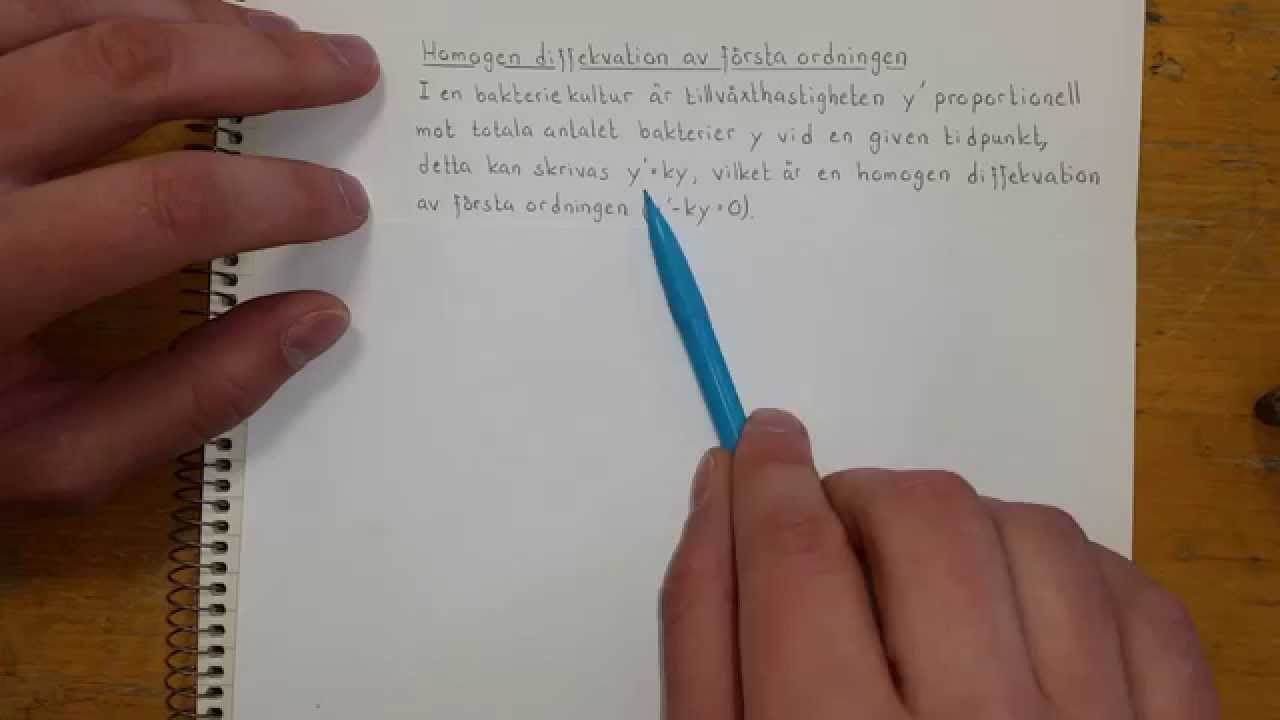 Homogen diffekvation av första ordningen
I en bakteriekultur är tillväxthastigheten y' proportionell
mot totala antalet bakterier y vid en given tidpunkt,
detta kan skrivas y'=ky, vilket är en homogen diffekvation
av första ordningen '-ky=0).